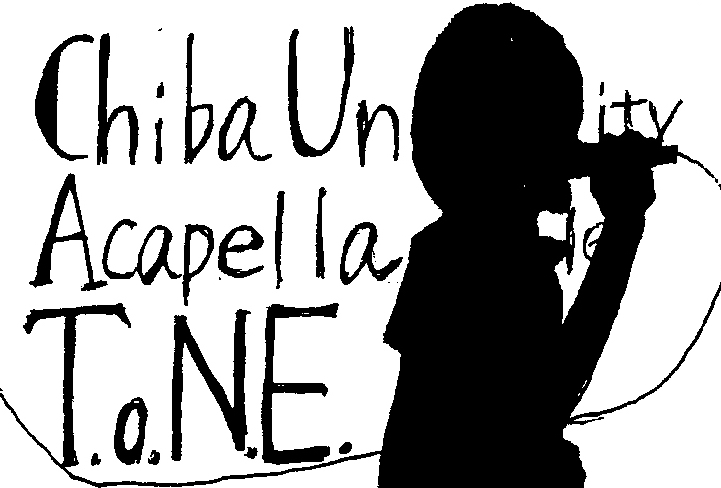 Chiba Un ity
Acapella le
T.o.N.E.